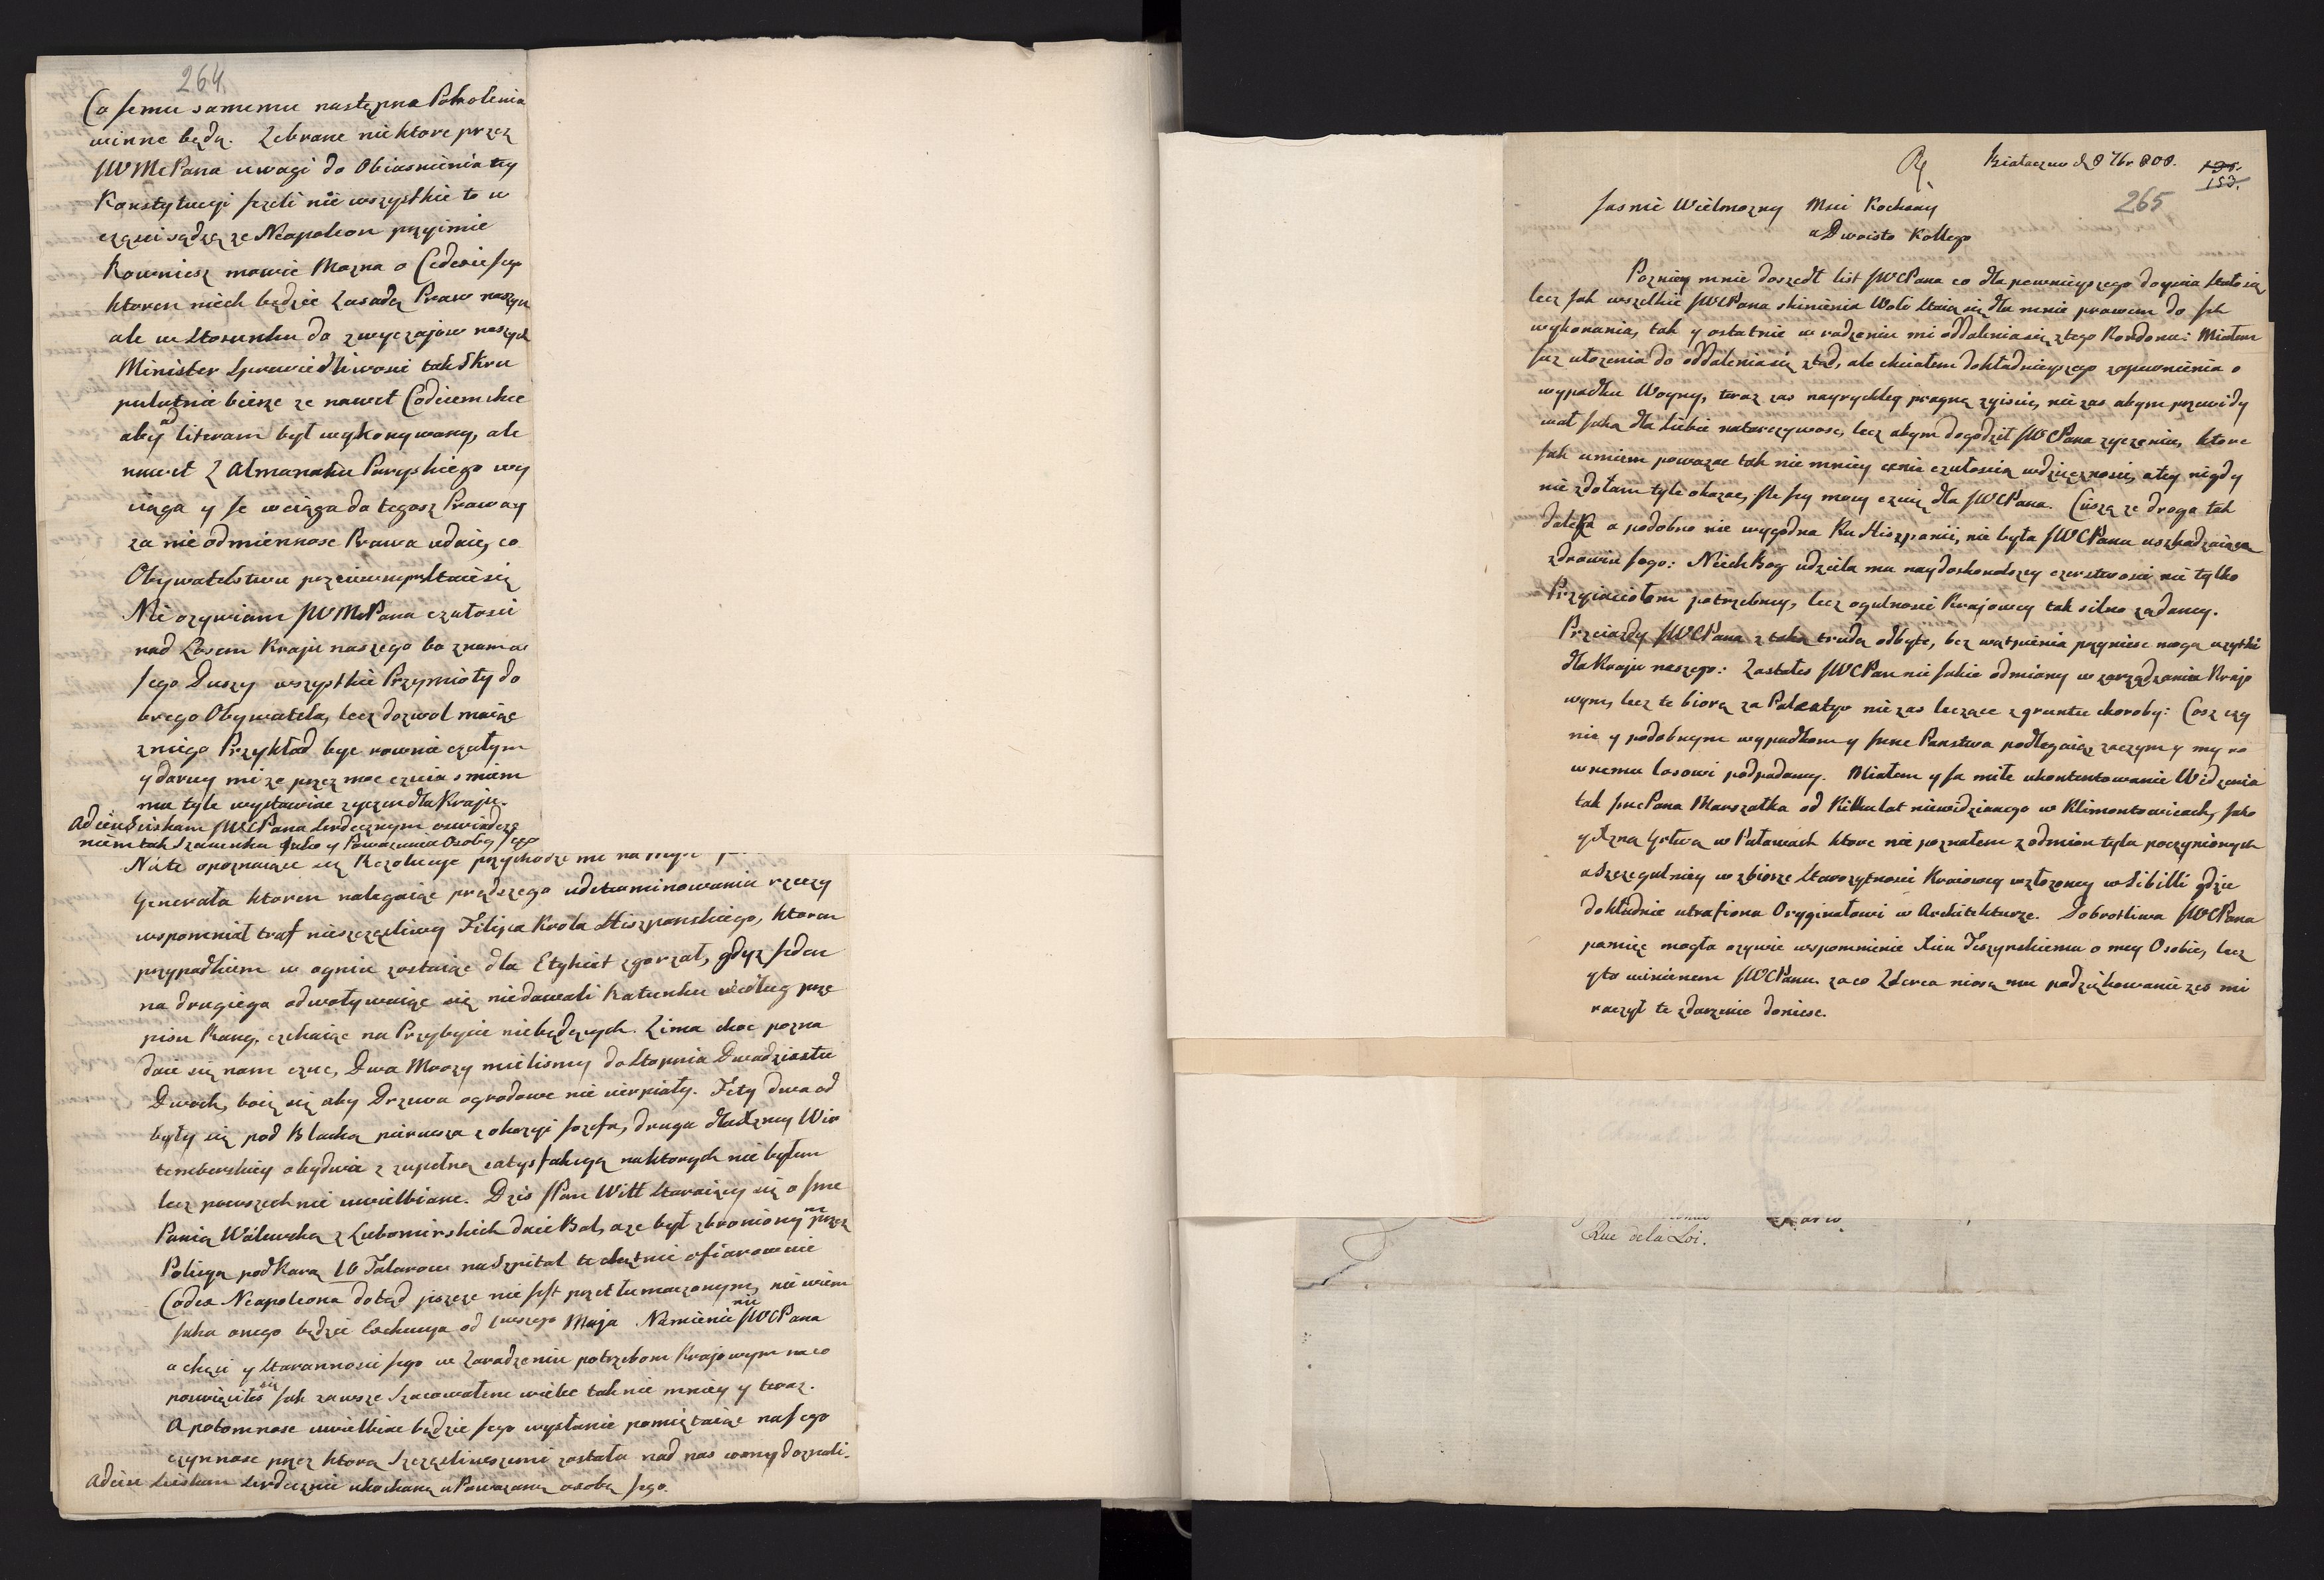 264
Co semu samemu następna Pokolenia
winne będą. Zebrane niektore przez
JWMcPana uwagi do Obiasnienia tey
Konstytucyi jezeli nie wszystkie to w
częsci sądzą ze Neapoleon przyimie
Rowniesz mowic Mozna o Codexie Jego
ktoren niech będzie Zasadą Praw naszych
ale w Stosunku do zwyczajow naszych
Minister Sprawiedliwosci tak Skru
pulutnie bierze ze nawet Codicem chce
aby ad literam był wykonywany, ale
nawet Z Almanaku Paryskiego wy
ciąga y se wciąga do tegosz Praw ay
za nie odmiennosc Prawa udaie, co
Obywatelstwu przeciwnym Staie się
Nie ozywiam JWMcPana czułosci
nad Losem Kraju naszego bo znam ac
Jego Duszy wszystkie Przymioty do
brego Obywatela, lecz dozwol maiąc
zniego Przykład byc rownie czułym
y daruy mi ze przez moc czucia smiem
mu tyle wystawiac zyczen dla Kraju.
Adieu Sciskam JWCPana Serdecznym oswiadcze
niem tak Szacunku jako y Powazania Osoby Jego
Na te opozniaiące się Rezolucye przychodzi mi na mysl
Generała ktoren nalegaiąc prędszego udeterminowania rzeczy
wspomniał traf nieszczęsliwy Filipa Krola Hiszpanskiego, ktoren
przypadkiem w ogniu zostaiąc dla Etykiet zgorzał, gdyz jeden
na drugiego odwoływaiąc się niedawali Ratunku według prze
pisu Rang, czekaiąc na Przybycie niebędących. Zima choc pozna
daie się nam czuc, Dwa Mrozy mielismy do Stopnia Dwadziestu
Dwoch, boię się aby Drzewa ogrodowe nie cierpiały. Fety dwa od
były się pod Blachą pierwsza z okazyi Jozefa, druga dla Xzney Wir
temberskiey obydwie z zupełną satysfakcyą na ktorych nie byłem
lecz powszechnie uwielbiane. Dzis JPan Witt Staraiący się o Jmc
Panią Walewską z Lubomirskich daie Bal, a ze był zbroniony przez
Policyą pod Karą 10 Talarow na Szpital te chętnie ofiarowaie
Codex Neapoleona dotąd jeszcze nie jest przetłumaczonym, nie wiem
jaka onego będzie Exekucya od 1wszego Maja Namienie nie JWCPana
a chęci y Starannosci Jego w Zaradzeniu potrzebom Krajowym na co
poswięciłes się jak zawsze Szacowałem wielce tak nie mniey y teraz.
A potomnosc uwielbiac będzie Jego wysłanie pomiętaiąc na Jego
czynnosc przez ktorą Szczęsliwszemi zostało nad nas coszmy doznali.
Adieu Sciskam Serdecznie ukochaną a Powazaną osobę Jego.
Białaczew d 8 7br 808.
265
153.
Jasnie Wielmozny Msci Kochany
a Dwoisto Kollego
Pozniey mnie doszedł list JWCPana co dla pewnieyszego doyscia Stało się
lecz jak wszelkie JWCPana skinienia Woli Staią się dla mnie prawem do ich
wykonania, tak y ostatnie w radzeniu mi oddalenia się z tego Kordonu: Miałem
juz ułozenia do oddalenia się ztąd, ale chciałem dokładnieyszego zapewnienia o
wypadku Woyny, teraz zas nayrychley pragnę zyiscic, nie zas abym przewidy
wał jaką dla siebie natarczywosc, lecz abym dogodził JWCPana zyczeniu, ktore
jak umiem powazac tak nie mniey cenie czułoscią wdzięcznosci, a tey nigdy
nie zdołam tyle okazac, ile jey mocy czuię dla JWCPana. Cieszę ze droga tak
daleka a podobno nie wygodna Ku Hiszpanii, nie była JWCPanu uszkadzaiąca
zdrowiu Jego: Niech Bog udziela mu naydoskonalszey czerstwosci nie tylko
Przyiaciołom potrzebney, lecz ogulnosci Krajowey tak silno ządaney.
Przeiazdy JWCPana z taką trudą odbyte, bez wątpienia przyniesc mogą uzytki
dla Kraju naszego: Zastałes JWCPan nie jakie odmiany w zarządzaniu Krajo
wym, lecz te biorą za Paleatyw nie zas leczące z gruntu choroby: Cosz czy
nic y podobnym wypadkom y Jnne Panstwa podlegaią zaczym y my ro
wnemu losowi podpadamy. Miałem y Ja miłe ukontentowanie Widzenia
tak Jmc Pana Marszałka od Kilku lat niewidzianego w Klimontowicach, Jako
y Xzną Gstwa w Puławach ktore nie poznałem z odmian tyla poczynionych
a Szczegulniey w zbiorze Starozytnosci Kraiowey wzłozoney w Sibilli gdzie
dokładnie utrafiona Oryginałowi w Architekturze. Dobrotliwa JWCPana
pamięc mogła ozywic wspomnienie Xciu Jeszynskiemu o mey Osobie, lecz
y to winienem JWCPanu za co Z Serca niosę mu podziękowanie zes mi
raczył te zdarzenie doniesc.
Rue de la Loi.